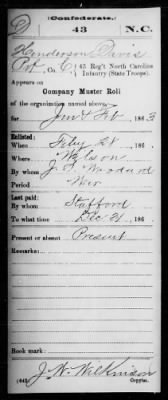 (Confederate.)
D 43 N.C.
Henderson Davis
Pvt, Co. C, 43 Reg't North Carolina
Infantry (State Troops).
Appears on
Company Muster Roll
of the organization named above
for Jan & Feb, 1863
Enlisted:
When Feby 28, 186
Where Wilson
By whom J. S. Woodard
Period War
Last paid:
By whom Stafford
To what time Dec 31, 186
Present or absent Present
Remarks:
Book mark:
J. W. Wilkinson
(642) Copyist.